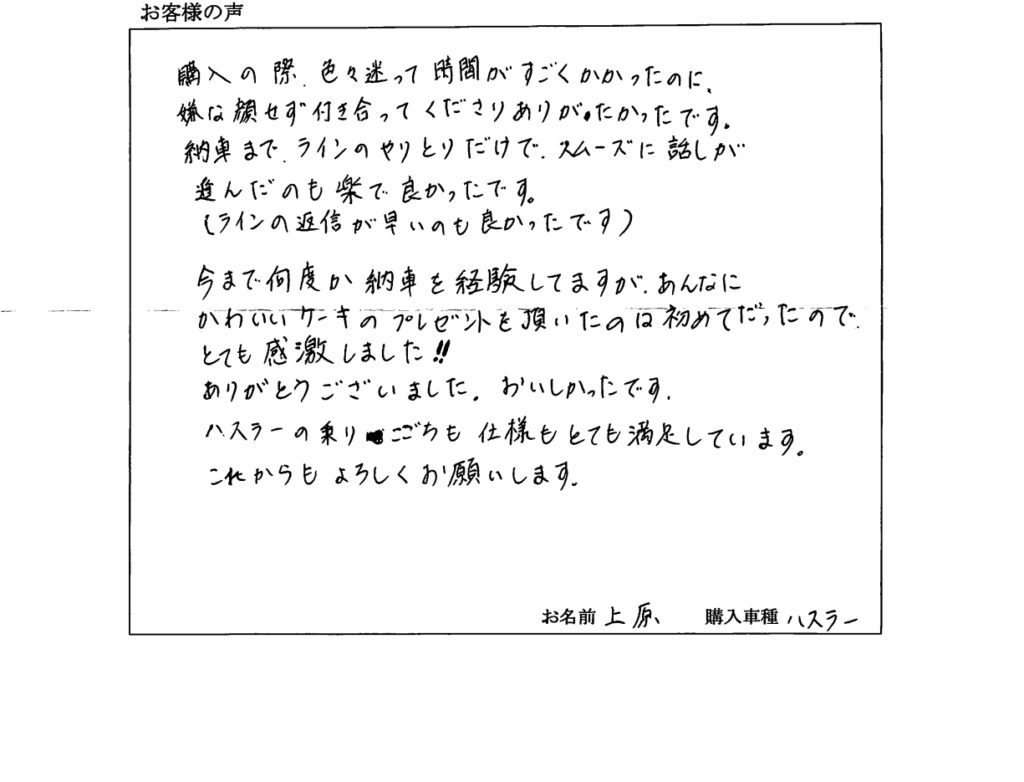 お客様の声
購入の際、色々迷って時間がすごくかかったのに、
嫌な顔せず付き合ってくださりありがたかったです。
納車まで、ラインのやりとりだけで、スムーズに話しが
進んだのも楽で良かったです。
(ラインの返信が早いのも良かったです)
今まで何度か納車を経験してますが、あんなに
かわいいケーキのプレゼントを頂いたのは初めてだったので、
とても感激しました!!
ありがとうございました。おいしかったです。
ハスラーの乗りごこちも仕様もとても満足しています。
これからもよろしくお願いします。
お名前 上原、 購入車種 ハスラー